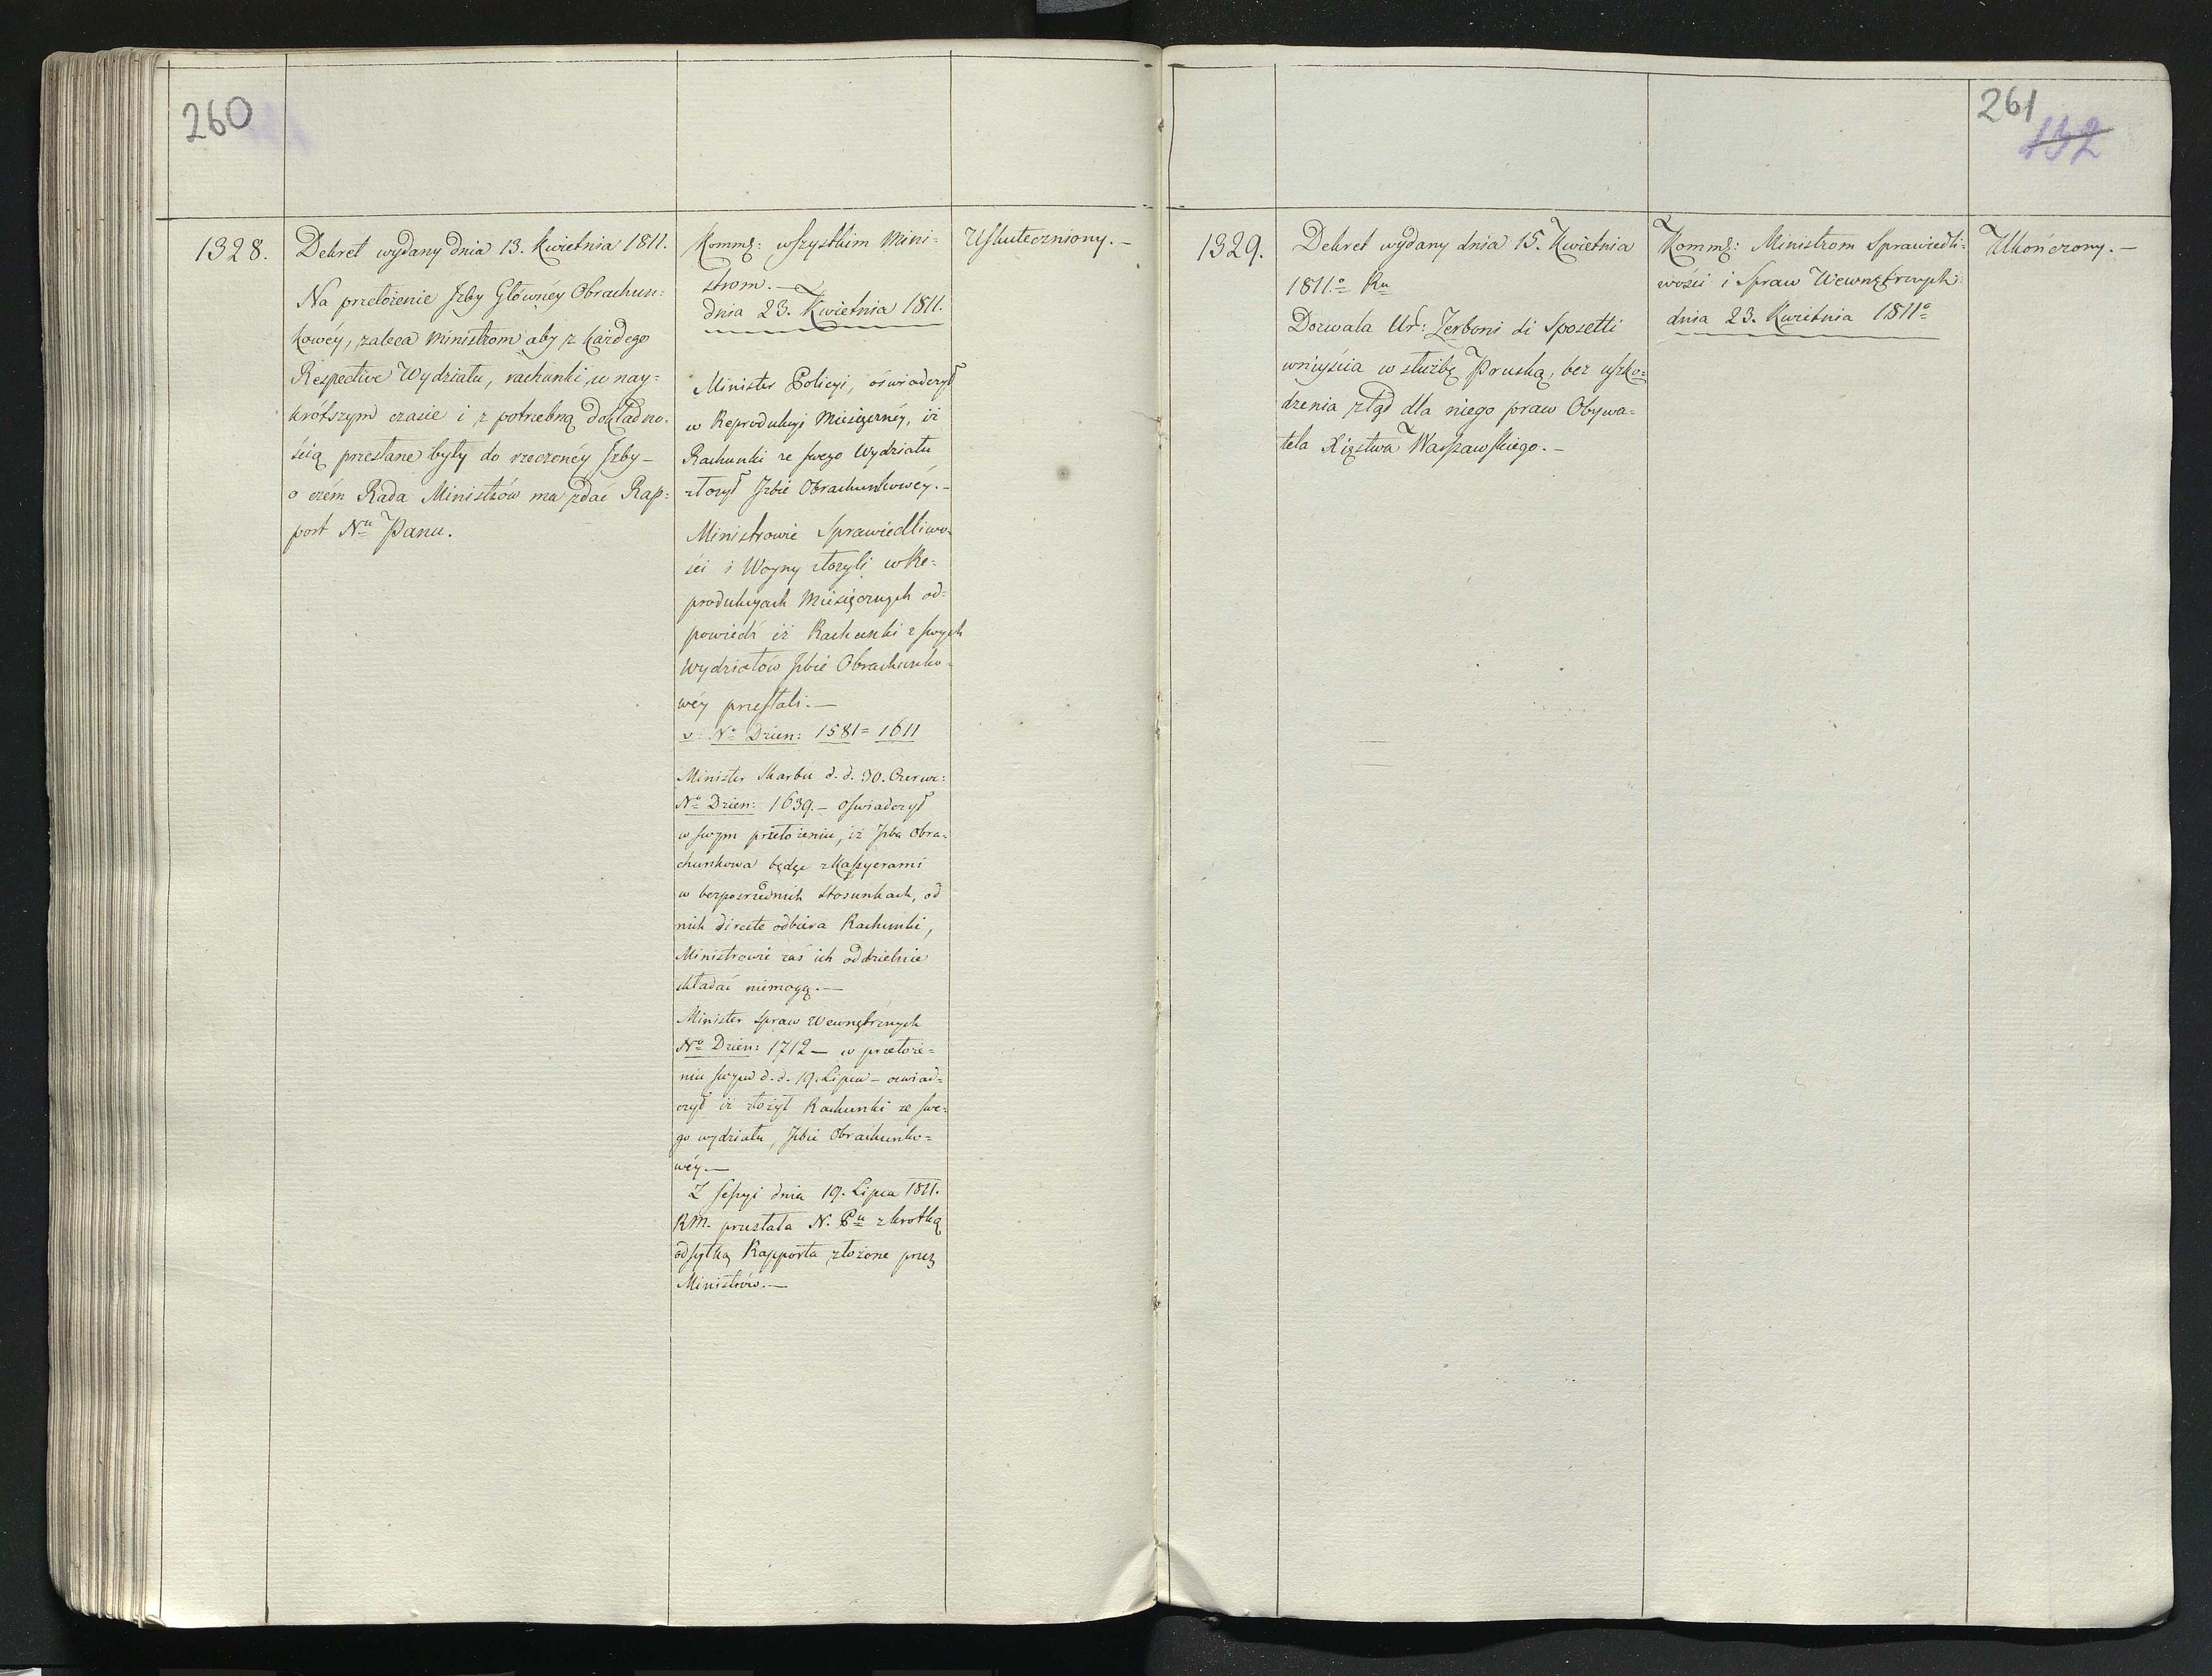 260
1328.
Dekret wydany dnia 13. Kwietnia 1811.
Na przełożenie Jzby Głównéy Obrachun:
kowéy, zaleca Ministrom aby z każdego
Respective Wydziału, rachunki w nay:
krótszym czasie i z potrzebną dokładno:
ścią przesłane były do rzeczonéy Jzby –
o czém Rada Ministrów ma zdać Rap:
port Nu Panu.
Kommg: wszystkim Mini:
strom. –
dnia 23. Kwietnia 1811.
Minister Policyi, oświadczył
w Reprodukcyi Miesięcznéy, iż
Rachunki ze swego Wydziału
złożył Jzbie Obrachunkowéy. –
Ministrowie Sprawiedliwo:
ści i Woyny złożyli w Re:
produkcyach Miesięcznych od:
powiedź iż Rachunki z swych
Wydziałów Jzbie Obrachunko:
wéy przesłali. –
v: No Dzien: 1581 = 1611
Minister Skarbu d. d. 30. Czerwc:
No Dzien: 1639. – oświadczył
w swym przełożeniu, iż Jzba Obra:
chunkowa będąc z Kassyerami
w bezpośrednich stosunkach, od
nich directe odbiera Rachunki,
Ministrowie zaś ich oddzielnie
składać niemogą. –
Minister Spraw Wewnętrznych
No Dzien: 1712 – w przełoże=
niu swym d. d. 19. Lipca – oswiad=
czył iż złożył Rachunki ze swe:
go wydziału, Jzbie Obrachunko=
wéy. –
Z Sessyi dnia 19. Lipca 1811.
RM. przesłała N. Pu z krotką
odsyłką Rapporta złożone przez
Ministrów. –
Uskuteczniony. –
261
132
1329.
Dekret wydany dnia 15. Kwietnia
1811.o Ru
Dozwala Ur: Zerboni di Sposetti
wniyścia w służbę Pruską, bez uszko=
dzenia ztąd dla niego praw Obywa=
tela Xięstwa Warszawskiego. –
Kommg: Ministrom Sprawiedli=
wości i Spraw Wewnętrznych
dnia 23. Kwietnia 1811o
Ukończony. –